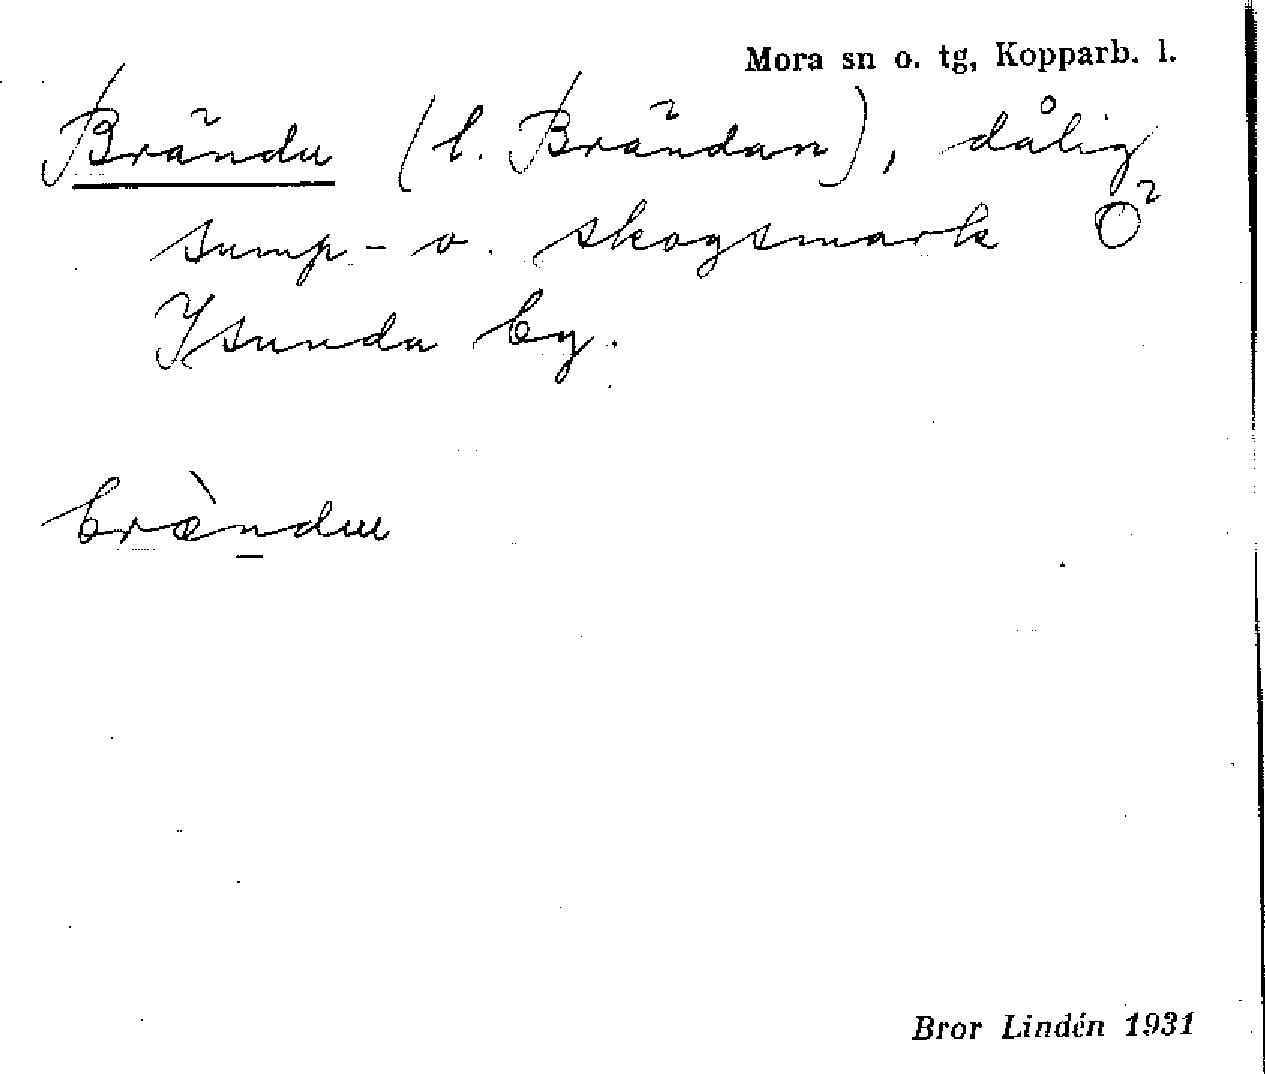 Mora sn o. tg, Kopparb. l.
Brändu (l. Brändan), dålig
sump- o. skogsmark Ö
Isunda by.
bræ̀ndu
Bror Lindén 1931